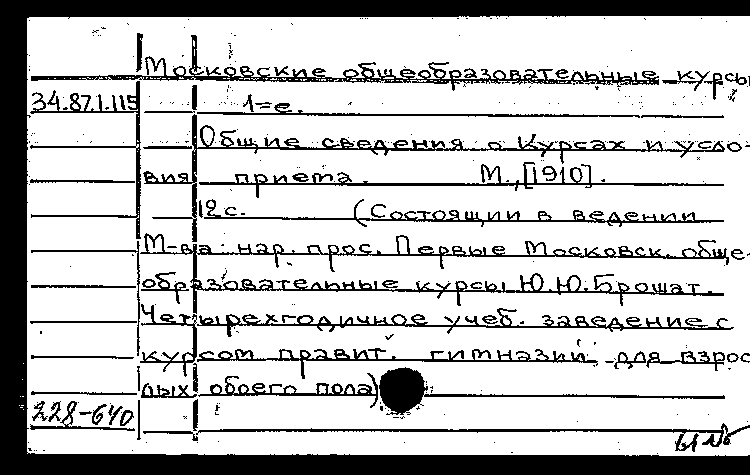 Московские общеобразовательные курсы
34.87.1.115 1=е.
Общие сведения о Курсах и усло-
вия приема. М., [1910].
12с. (Состоящии в ведении
М-ва нар. прос. Первые Московск. обще-
образовательные курсы Ю.Ю.Брошат.
Четырехгодичное учеб. заведение с
курсом правит. гимназий для взрос
лых обоего пола)
228-640